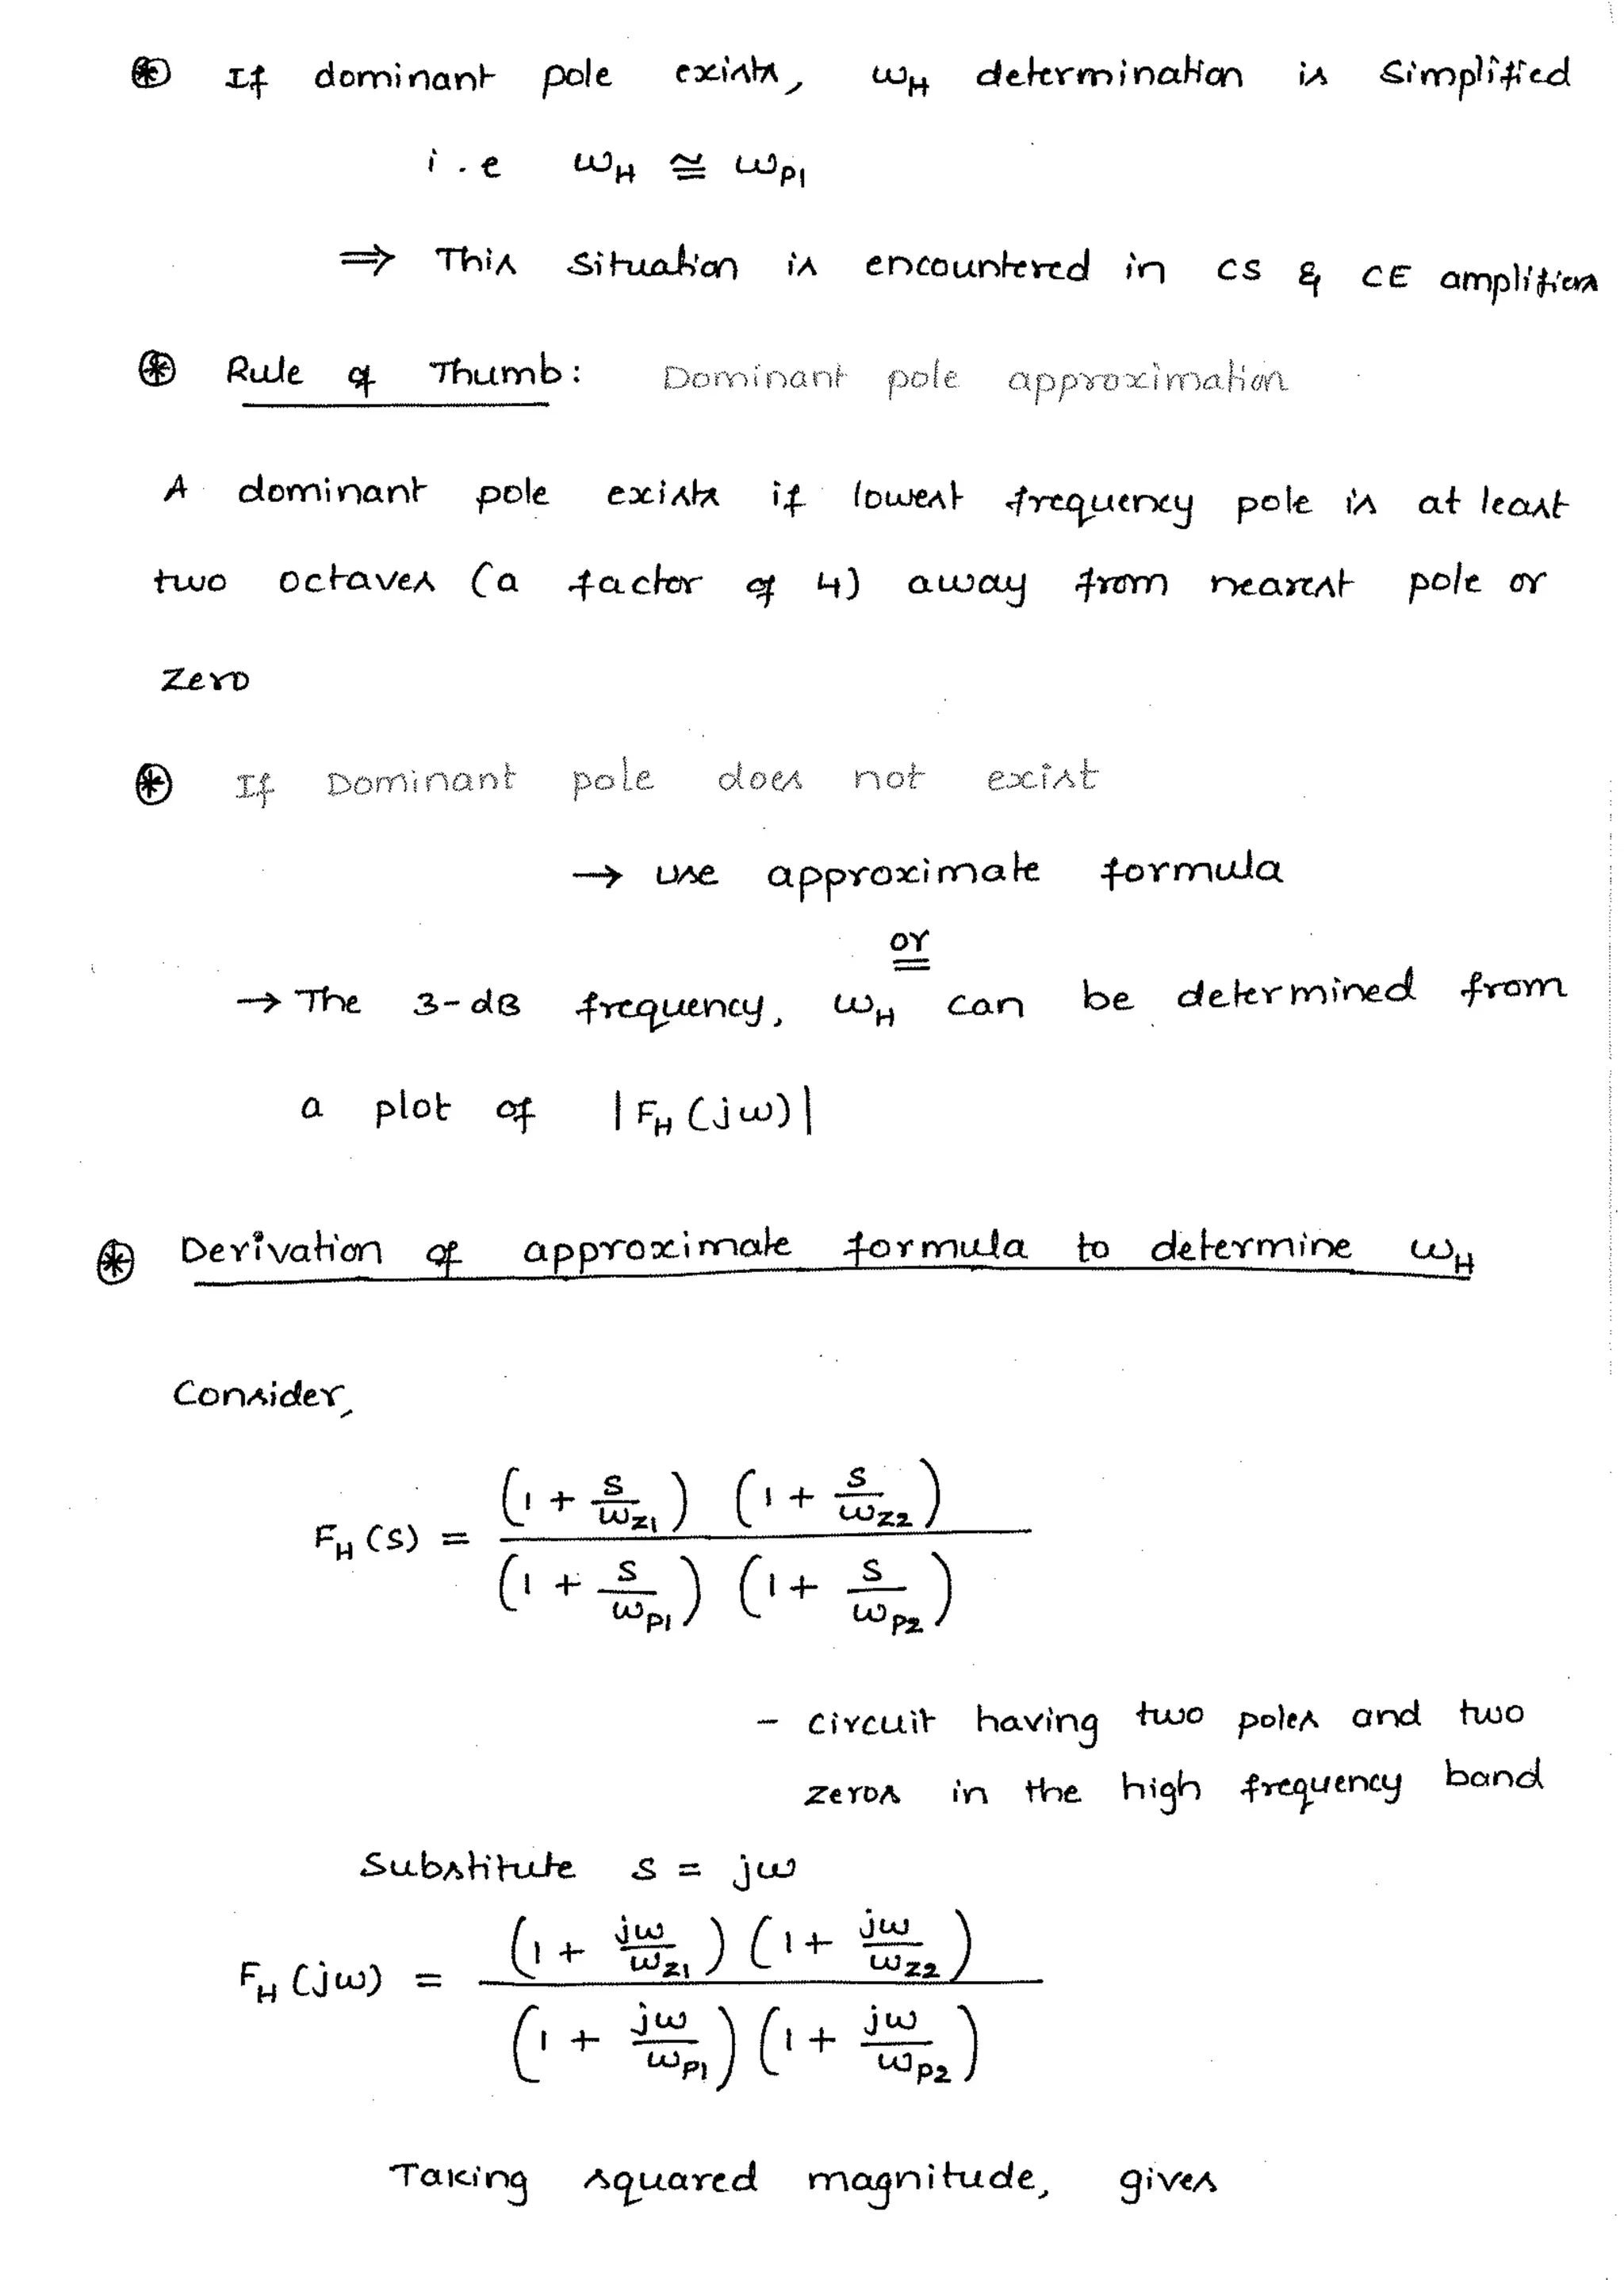 ⊛ If dominant pole exists, ωH determination is simplified
i.e ωH ≅ ωP1
⇒ This situation is encountered in CS & CE amplifiers
⊛ Rule of Thumb: Dominant pole approximation
A dominant pole exists if lowest frequency pole is at least
two octaves (a factor of 4) away from nearest pole or
zero
⊛ If Dominant pole does not exist
→ use approximate formula
or
→ The 3-dB frequency, ωH can be determined from
a plot of |FH (jω)|
⊛ Derivation of approximate formula to determine ωH
Consider,
FH (s) = (1 + s/ωZ1) (1 + s/ωZ2) / (1 + s/ωP1) (1 + s/ωP2)
- circuit having two poles and two
zeros in the high frequency band
Substitute s = jω
FH (jω) = (1 + jω/ωZ1) (1 + jω/ωZ2) / (1 + jω/ωP1) (1 + jω/ωP2)
Taking squared magnitude, gives